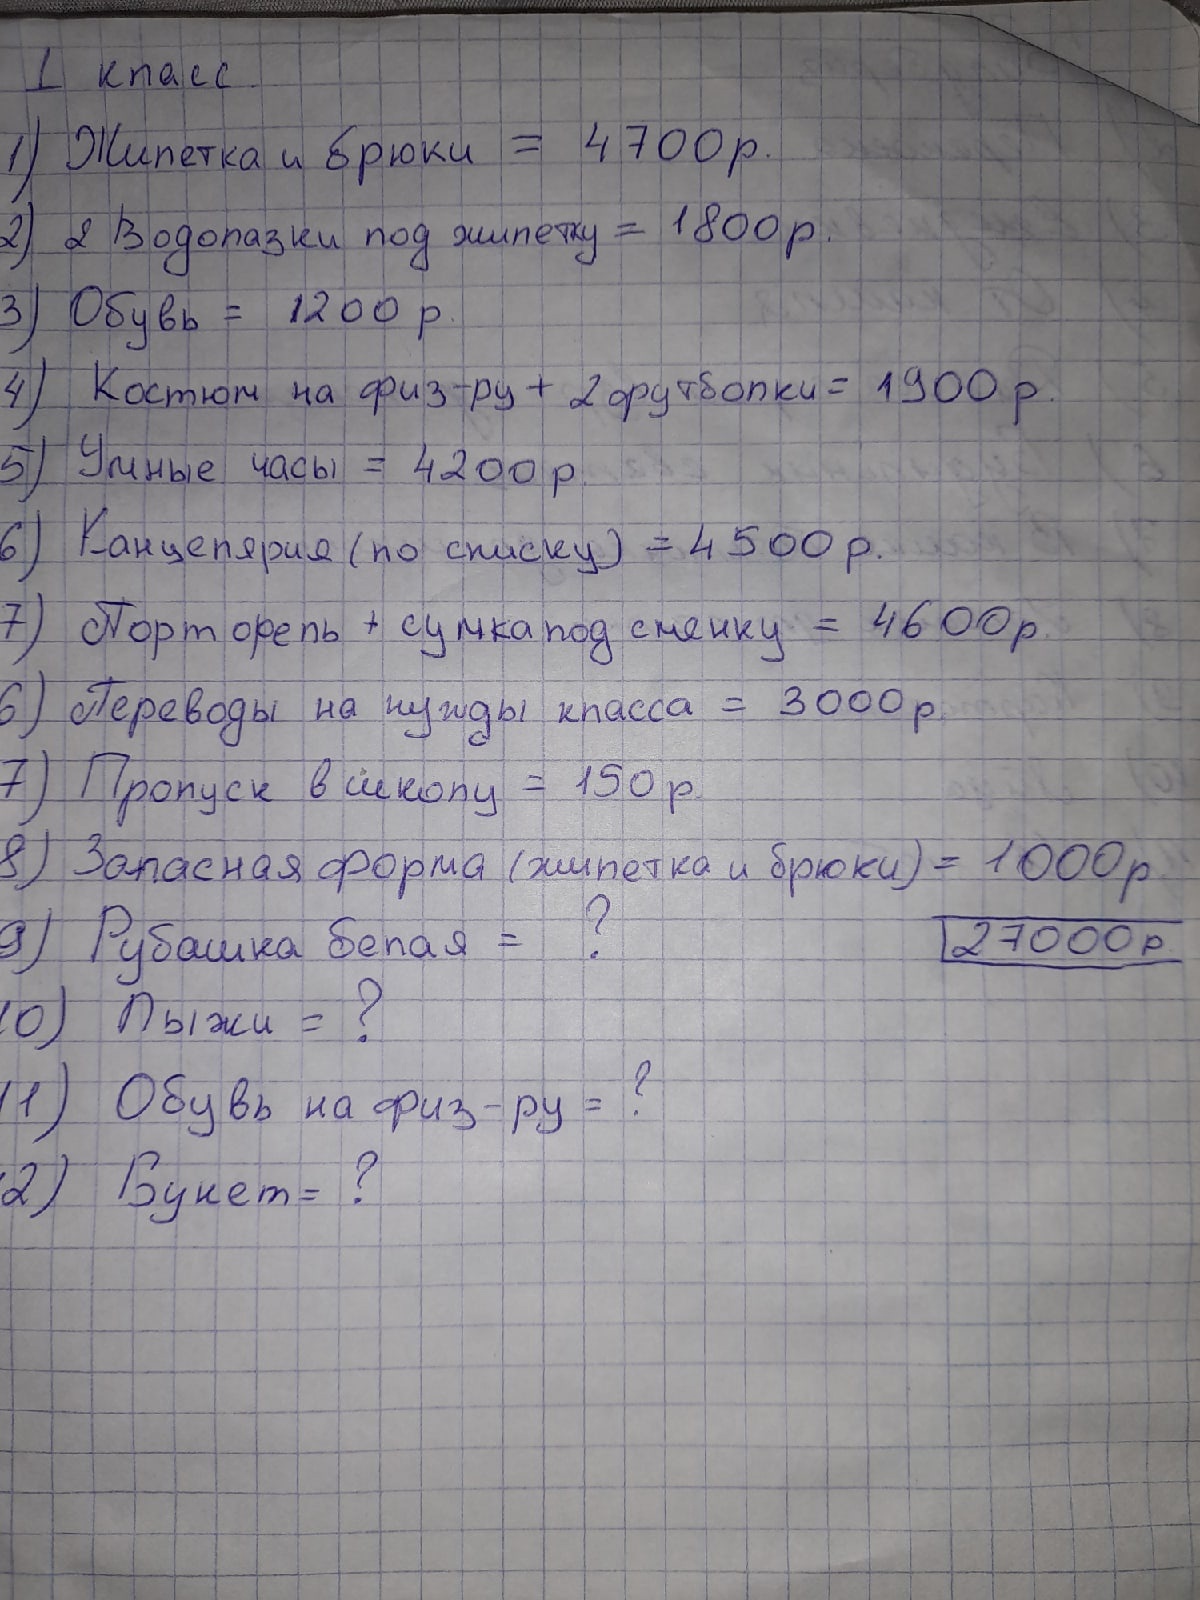 1 класс
1) Жилетка и брюки = 4700р.
2) 2 Водолазки под жилетку = 1800р.
3) Обувь = 1200р.
4) Костюм на физ-ру + 2 футболки = 1900р.
5) Умные часы = 4200р.
6) Канцелярия (по списку) = 4500р.
7) Портфорель + сумка под сменку = 4600р.
6) Переводы на нужды класса = 3000р.
7) Пропуск в школу = 150р.
8) Запасная форма (жилетка и брюки) = 1000р.
9) Рубашка белая = ?
27000р.
10) Лыжи = ?
11) Обувь на физ-ру = ?
12) Букет = ?